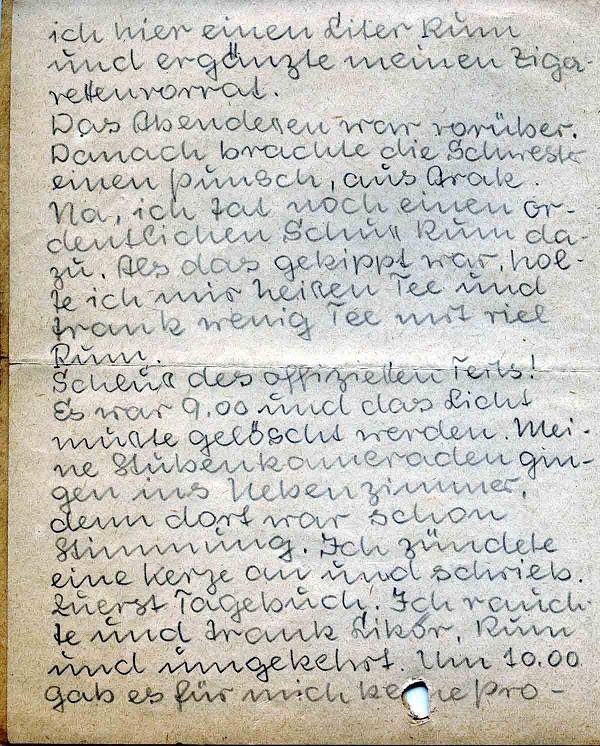 ich hier einen Liter Rum
und ergänzte meinen Ziga-
rettenvorrat.
Das Abendessen war vorüber.
Danach brachte die Schwester
einen Punsch, aus Arak.
Na, ich tat noch einen or-
dentlichen Schuß Rum da-
zu. Als das gekippt war, hol-
te ich mir heißen Tee und
trank wenig Tee mit viel
Rum.
Schluß des offiziellen Teils!
Es war 9.00 und das Licht
mußte gelöscht werden. Mei-
ne Stubenkameraden gin-
gen ins Nebenzimmer,
denn dort war schon
Stimmung. Ich zündete
eine Kerze an und schrieb.
Zuerst Tagebuch. Ich rauch-
te und trank Likör, Rum
und umgekehrt. Um 10.00
gab es für mich keine Pro-